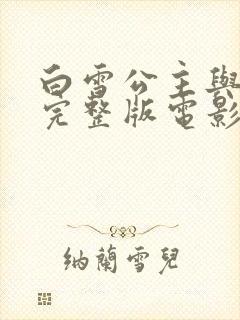 白雪公主與
完整版電影
納蘭雪兒